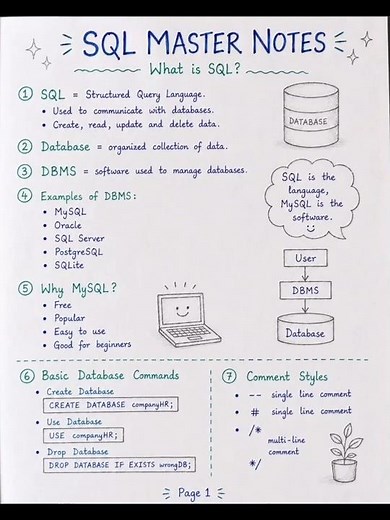 SQL MASTER NOTES
What is SQL?
① SQL = Structured Query Language.
• Used to communicate with databases.
• Create, read, update and delete data.
② Database = organized collection of data.
③ DBMS = software used to manage databases.
④ Examples of DBMS:
• MySQL
• Oracle
• SQL Server
• PostgreSQL
• SQLite
⑤ Why MySQL?
• Free
• Popular
• Easy to use
• Good for beginners
DATABASE
SQL is the
language,
MySQL is the
software.
User
DBMS
Database
⑥ Basic Database Commands
• Create Database
CREATE DATABASE companyHR;
• Use Database
USE companyHR;
• Drop Database
DROP DATABASE IF EXISTS wrongDB;
⑦ Comment Styles
• -- single line comment
• # single line comment
• /*
multi-line
comment
*/
Page 1